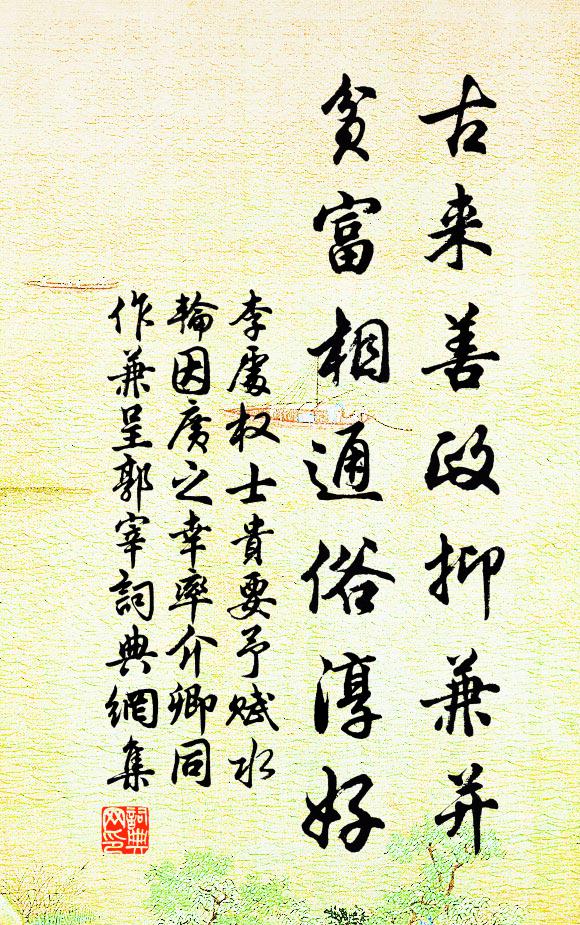 古来善政抑兼并
貧富相通俗淳好
李處权士貴要予赋水
輪因廣之幸率介卿同
作兼呈郭宰詞典網集
詞典网印